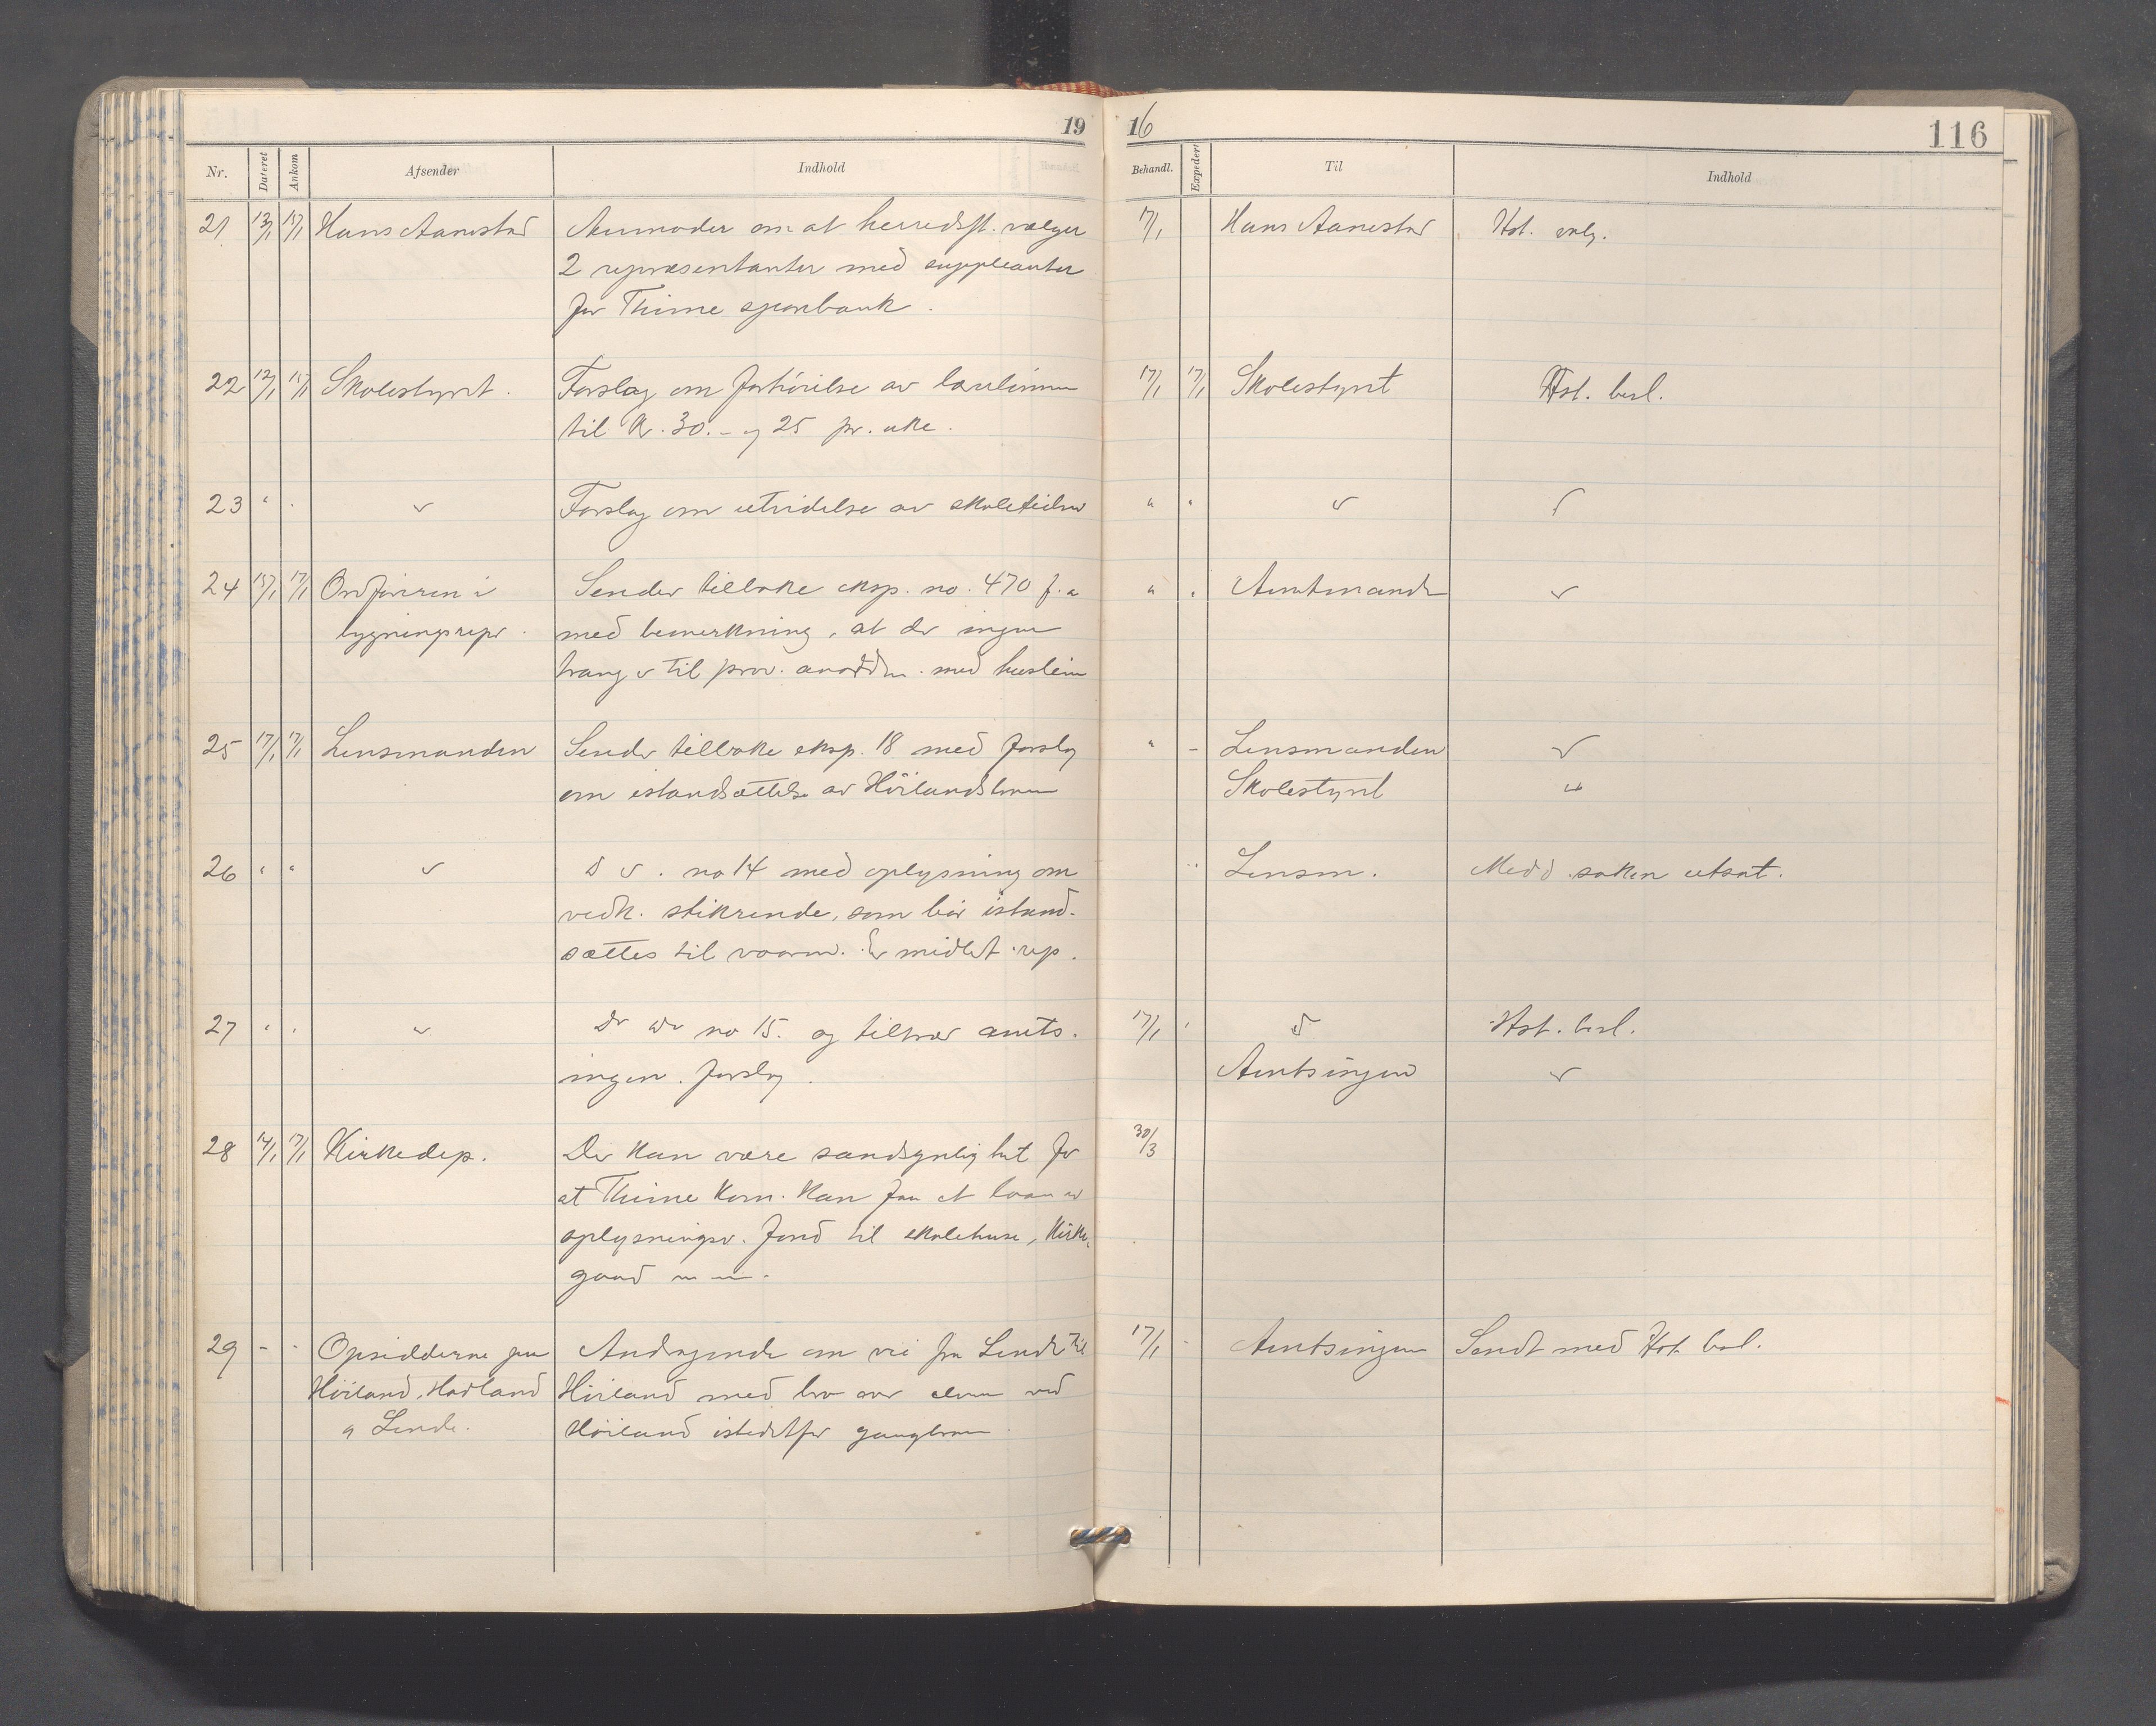 19 16
116
Nr. Dateret Ankom Afsender Indhold Behandl. Expedert Til Indhold
21. 13/1 15/1 Hans Aanestad Anmoder om at herredsst. vælger 17/1 Hans Aanestad Hst. valg.
2 repræsentanter med suppleanter
for Thime sparebank.
22 12/1 15/1 Skolestyret. Forslag om forhöielse av lærelönnen 17/1 17/1 Skolestyret Hst. besl.
til Kr. 30.- og 25 pr. uke.
23 " " " Forslag om utvidelse av skoletiden " " " "
24 15/1 17/1 Ordföreren i Sender tilbake eksp. no. 470 f.a. " " Amtmanden "
bygningsrepr. med bemerkning, at der ingen
trang er til prov. anordn. med husleien
25 17/1 17/1 Lensmanden Sender tilbake eksp. 18 med forslag " - Lensmanden "
om istandsættelse av Höilandsbroen Skolestyret "
26 " " " D o . no 14 med oplysning om " Lensm. Medd. saken utsat.
vedk. stikrende, som bör istand-
sættes til vaaren. Er midlert. rep.
27 " " " Do Do no 15. og tiltrær amts. 17/1 " Do Hst. besl.
ingen. forslag. Amtsingen "
28 14/1 17/1 Kirkedep. Der kan være sandsynlighet for 30/3
at Thime kom. kan faa et laan av
oplysningsv. fond til skolehuse, kirke-
gaard m m.
29 - - Opsidderne paa Andragende om vei fra Lende til 17/1 - Amtsingen Sendt med Hst. besl.
Höiland, Hadland Höiland med bro over elven ved
og Lende. Höiland istedetfor gangbroen.